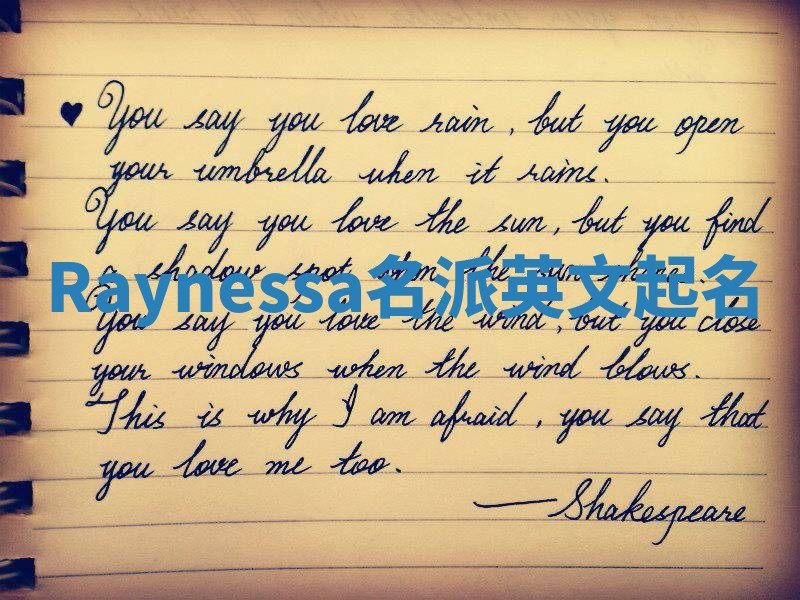 You say you love rain, but you open
your umbrella when it rains.
You say you love the sun, but you find
a shadow spot when the sun shines.
Raynessa名派英文起名
You say you love the wind, but you close
your windows when the wind blows.
This is why I am afraid, you say that
you love me too.
—Shakespeare